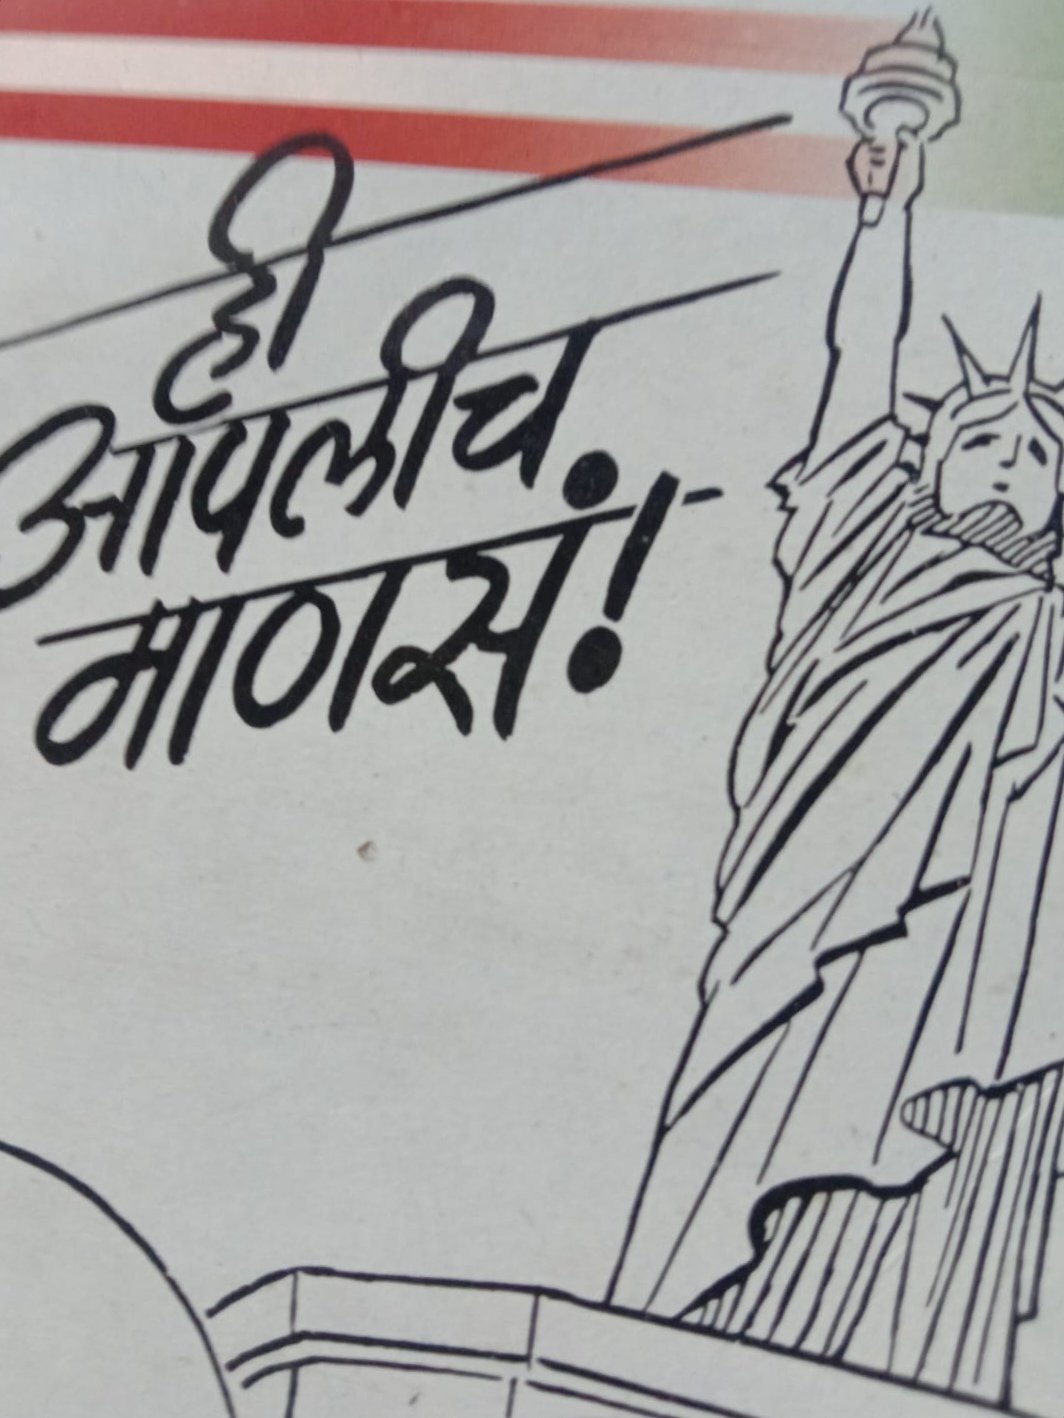 ही
आपलीच
माणसं!